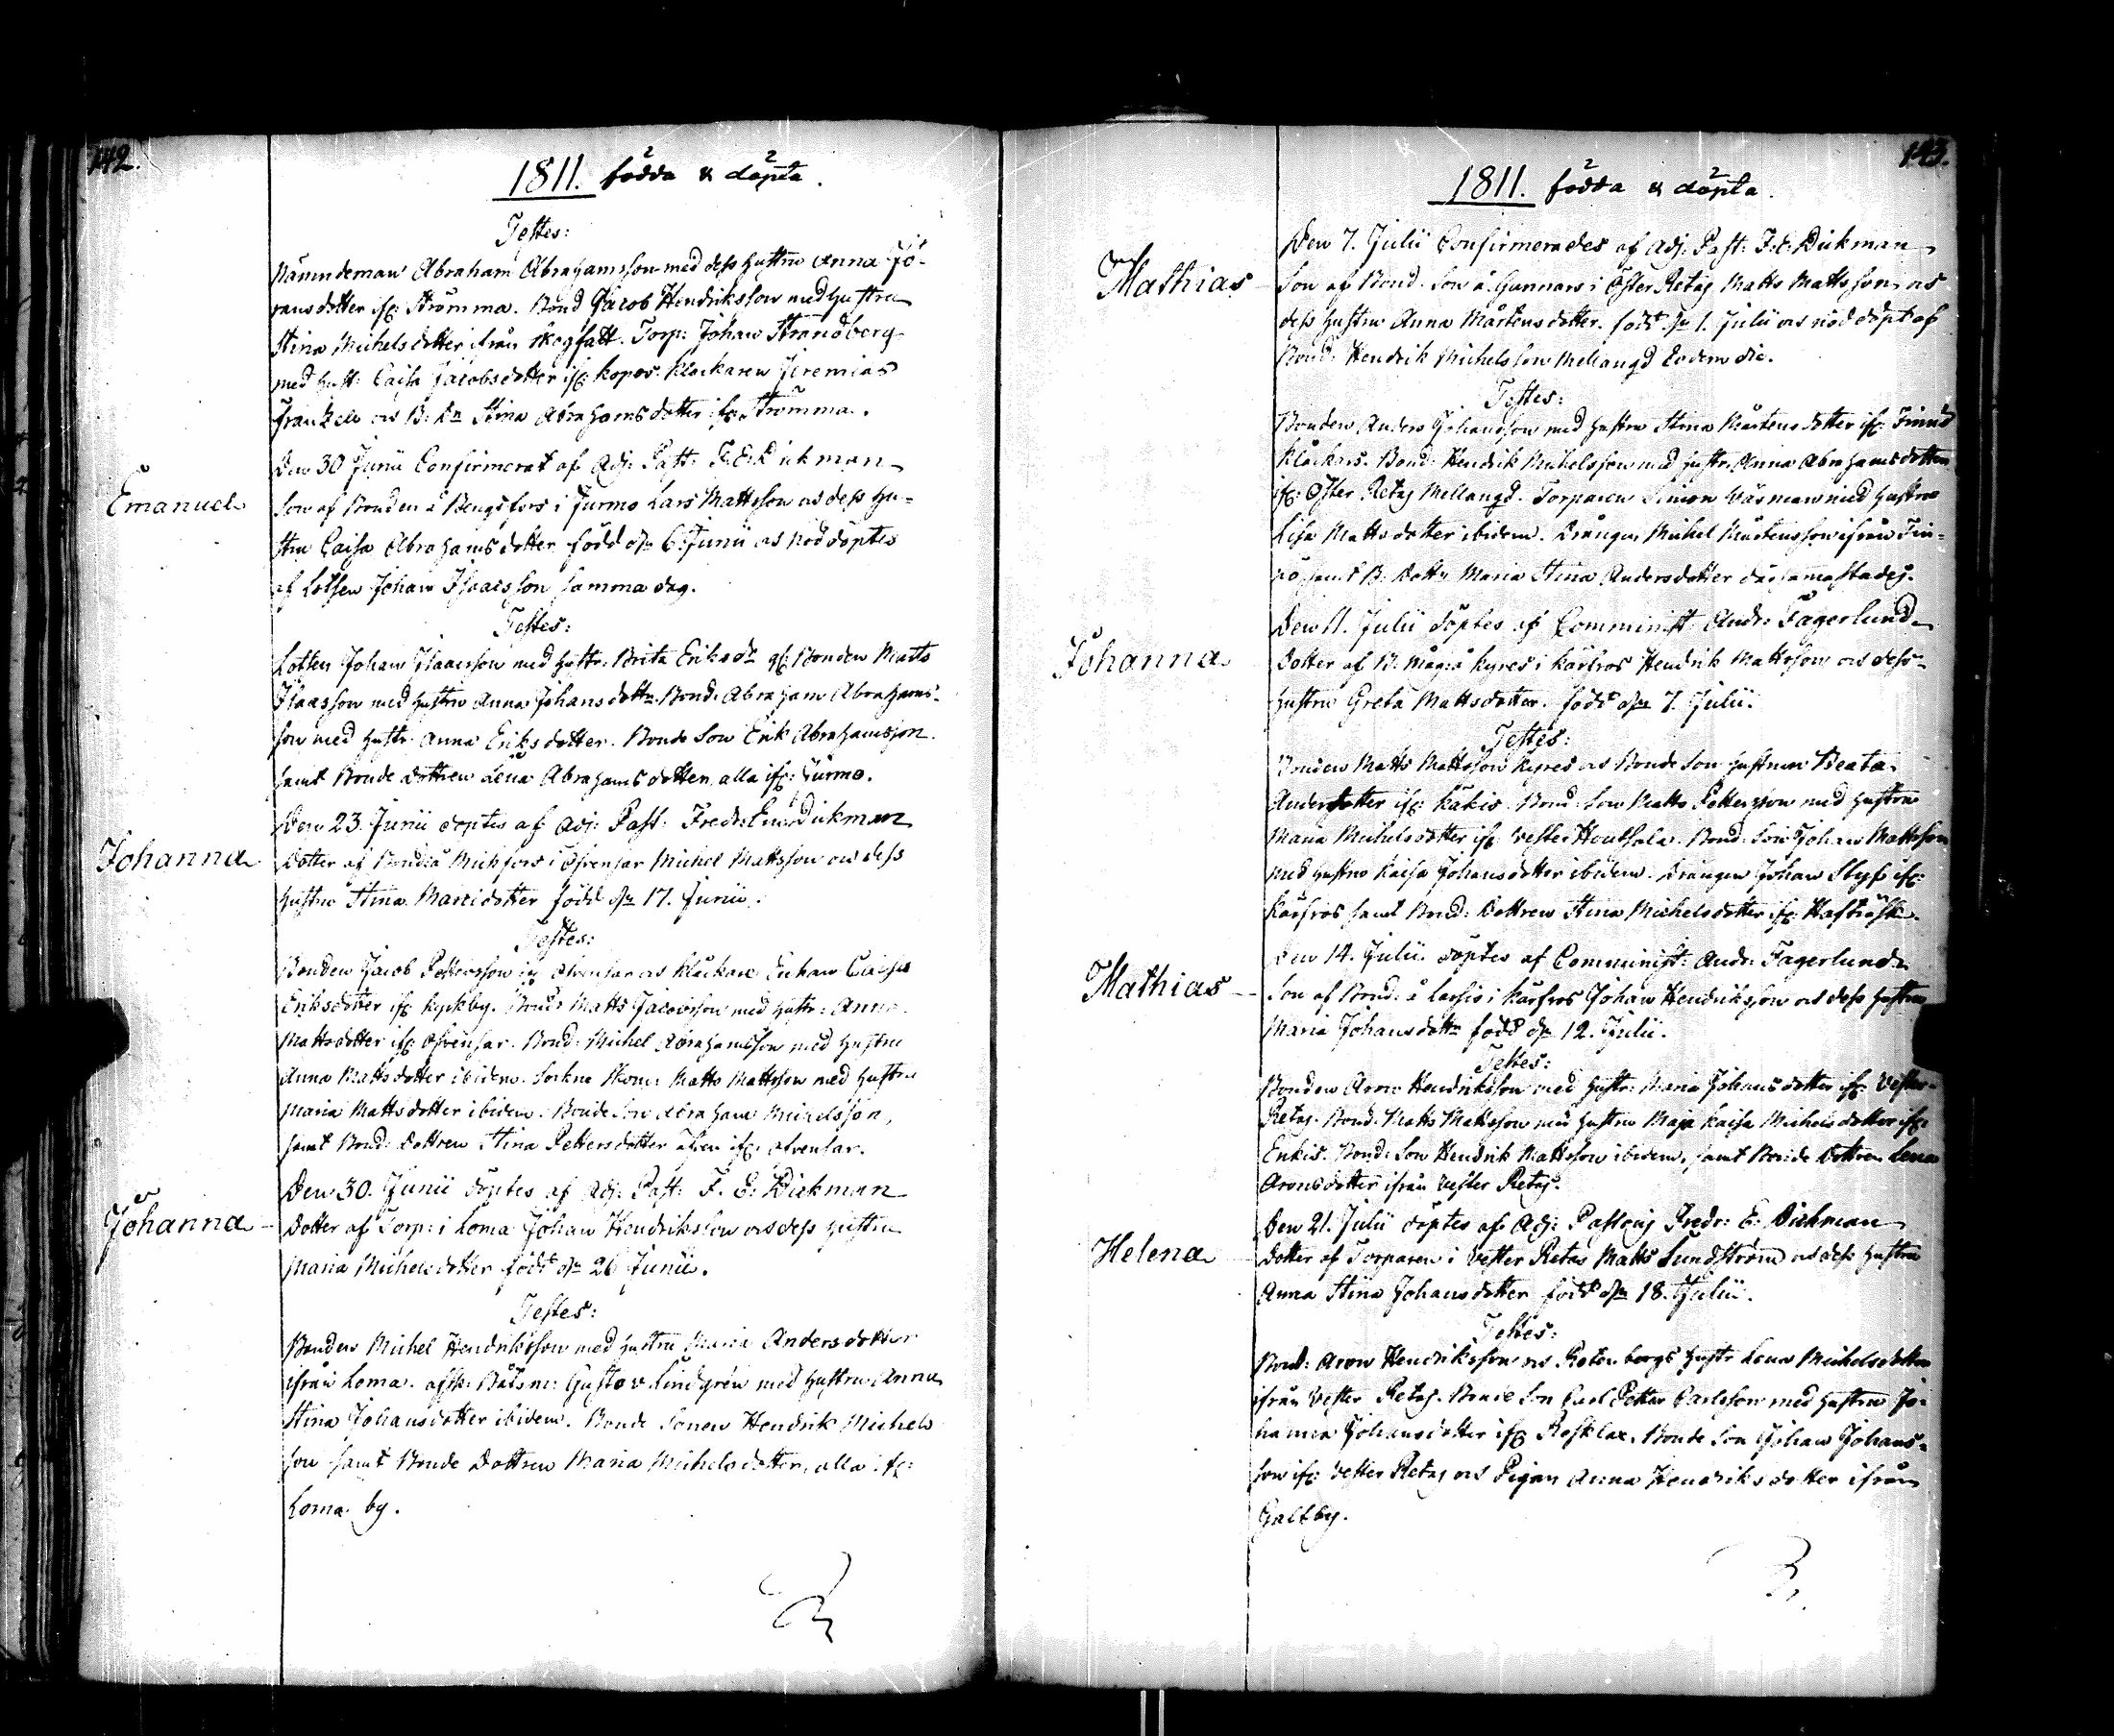 142.
1811. födda & döpta.
Testes:
Nämndeman Abraham Abrahamsson med dess hustru Anna Jö-
ransdotter ifr: Strömma. Bond Jacob Hendriksson med hustru
Stina Michelsdotter ifrån Torp: Johan Strandberg
med hust: Caisa Jacobsdotter ifr: Kopos. Klockaren Jeremias
Frantzele os B: Stina Abrahamsdotter ifr: Strömma.
Emanuel
Den 30 Junii Confirmerat af Adj: Past: F: E: Dickman
Son af Bonden å Bengsfors i Jurmo Lars Mattsson os dess hu-
stru Caisa Abrahamsdotter född d: 6 Junii os nöddöptes
af Lotsen Johan Isaacsson samma dag.
Testes:
Lotsen Johan Isaacsson med hustr: Brita Eriksdr Bonden Matts
Isaacsson med hustru Anna Johansdotter Bond: Abraham Abrahams-
son med hustr: Anna Eriksdotter. Bonde Son Erik Abrahamsson.
samt Bonde dottren Lena Abrahamsdotter, alla ifr: Jurmo.
Johanna
Den 23 Junii döptes af Adj: Past: Fredr: Em: Dickman
dotter af Bond: å i Åfvensar Michel Mattsson os dess
hustru Stina dotter född d: 17. Junii.
Testes:
Bonden Jacob Pettersson i Åfvensar os Klockare Enkan Caisa
Eriksdotter ifr: Kyrkby. Bond: Matts Jacobsson med hustr: Anna
Mattsdotter ifr: Åfvensar. Bond: Michel Abrahamsson med hustru
Anna Mattsdotter ibidem. Sockne Skom: Matts Mattsson med hustru
Maria Mattsdotter ibidem. Bonde Son Abraham Michelsson,
samt Bond: dottren Stina Pettersdotter äfven ifr: Åfvensar.
Johanna
Den 30. Junii döptes af Adj: Past: F. E: Dickman
dotter af Torp: i Loma Johan Hendriksson os dess hustru
Maria Michelsdotter född d: 26 Junii.
Testes:
Bonden Michel Hendriksson med hustru Maria Andersdotter
ifrån Loma. afsk: Båtsm: Gustav Lindgrén med hustru Anna
Stina Johansdotter ibidem. Bonde Sonen Hendrik Michels
son samt Bonde Dottren Maria Michelsdotter, alla ifr:
Loma by.
143.
1811. födda & döpta.
Mathias
Den 7. Julii Confirmerades af Adj: Past: F: E: Dickman
Son af Bond: Son å Gunnars i Öster Retais Matts Mattsson os
dess hustru Anna Mårtensdotter. född d: 1. Julii os nöddöpt af
Bond: Hendrik Michelsson Mellangd Eodem die.
Testes:
Bonden Anders Johansson med hustru Stina Mårtensdotter ifr: Finnö
Klockars. Bond: Hendrik Michelsson med hustr: Anna Abrahamsdotter
ifr: Öster Retais Mellangd. Torparen Simon Väsman med hustru
Lisa Mattsdotter ibidem. Drängen Michel Mårtensson ifrån Fin-
nö, samt B: Dottr: Maria Stina Andersdotter därsammastädes.
Johanna
Den 11. Julii döptes af Comminist: Andr: Fagerlund
Dotter af B: Måg å Kyres i Kårfros Hendrik Mattsson os dess
hustru Greta Mattsdotter. född d: 7. Julii.
Testes:
Bonden Matts Mattsson Kyres os Bonde Son hustrun Beata
Andersdotter ifr: Käkis. Bond: Son Matts Pettersson med hustru
Maria Michelsdotter ifr: Vester Houtsala. Bond: Son Johan Mattsson
med hustru Kaisa Johansdotter ibidem. Drängen Johan Styf ifr:
Kårfros samt Bond: Dottren Stina Michelsdotter ifr: Hafträsk.
Mathias
Den 14. Julii. döptes af Comminist: Andr: Fagerlund
Son af Bond: å Larsis i Kårfros Johan Hendriksson os dess hustru
Maria Johansdotter född d: 12. Julii.
Testes:
Bonden Aron Hendriksson med hustr: Maria Johansdotter ifr: Vester
Retais. Bond: Matts Mattsson med hustru Maja Kaisa Michelsdotter ifr:
Enkis. Bond: Son Hendrik Mattsson ibidem, samt Bonde Dottren Lena
Aronsdotter ifrån Vester Retais.
Helena
Den 21. Julii döptes af Adj: Pastoris Fredr: E: Dickman
dotter af Torparen i Vester Retais Matts Sundström os dess hustru
Anna Stina Johansdotter född d: 18. Julii.
Testes:
Bond: Aron Hendriksson os Rotenbergs hustr Lena Michelsdotter
ifrån Vester Retais. Bonde Son Carl Petter Carlsson med hustru Jo-
hanna Johansdotter ifr: Roslax. Bonde Son Johan Johans-
son ifr: Vester Retais os Pigan Anna Hendriksdotter ifrån
Galtby.